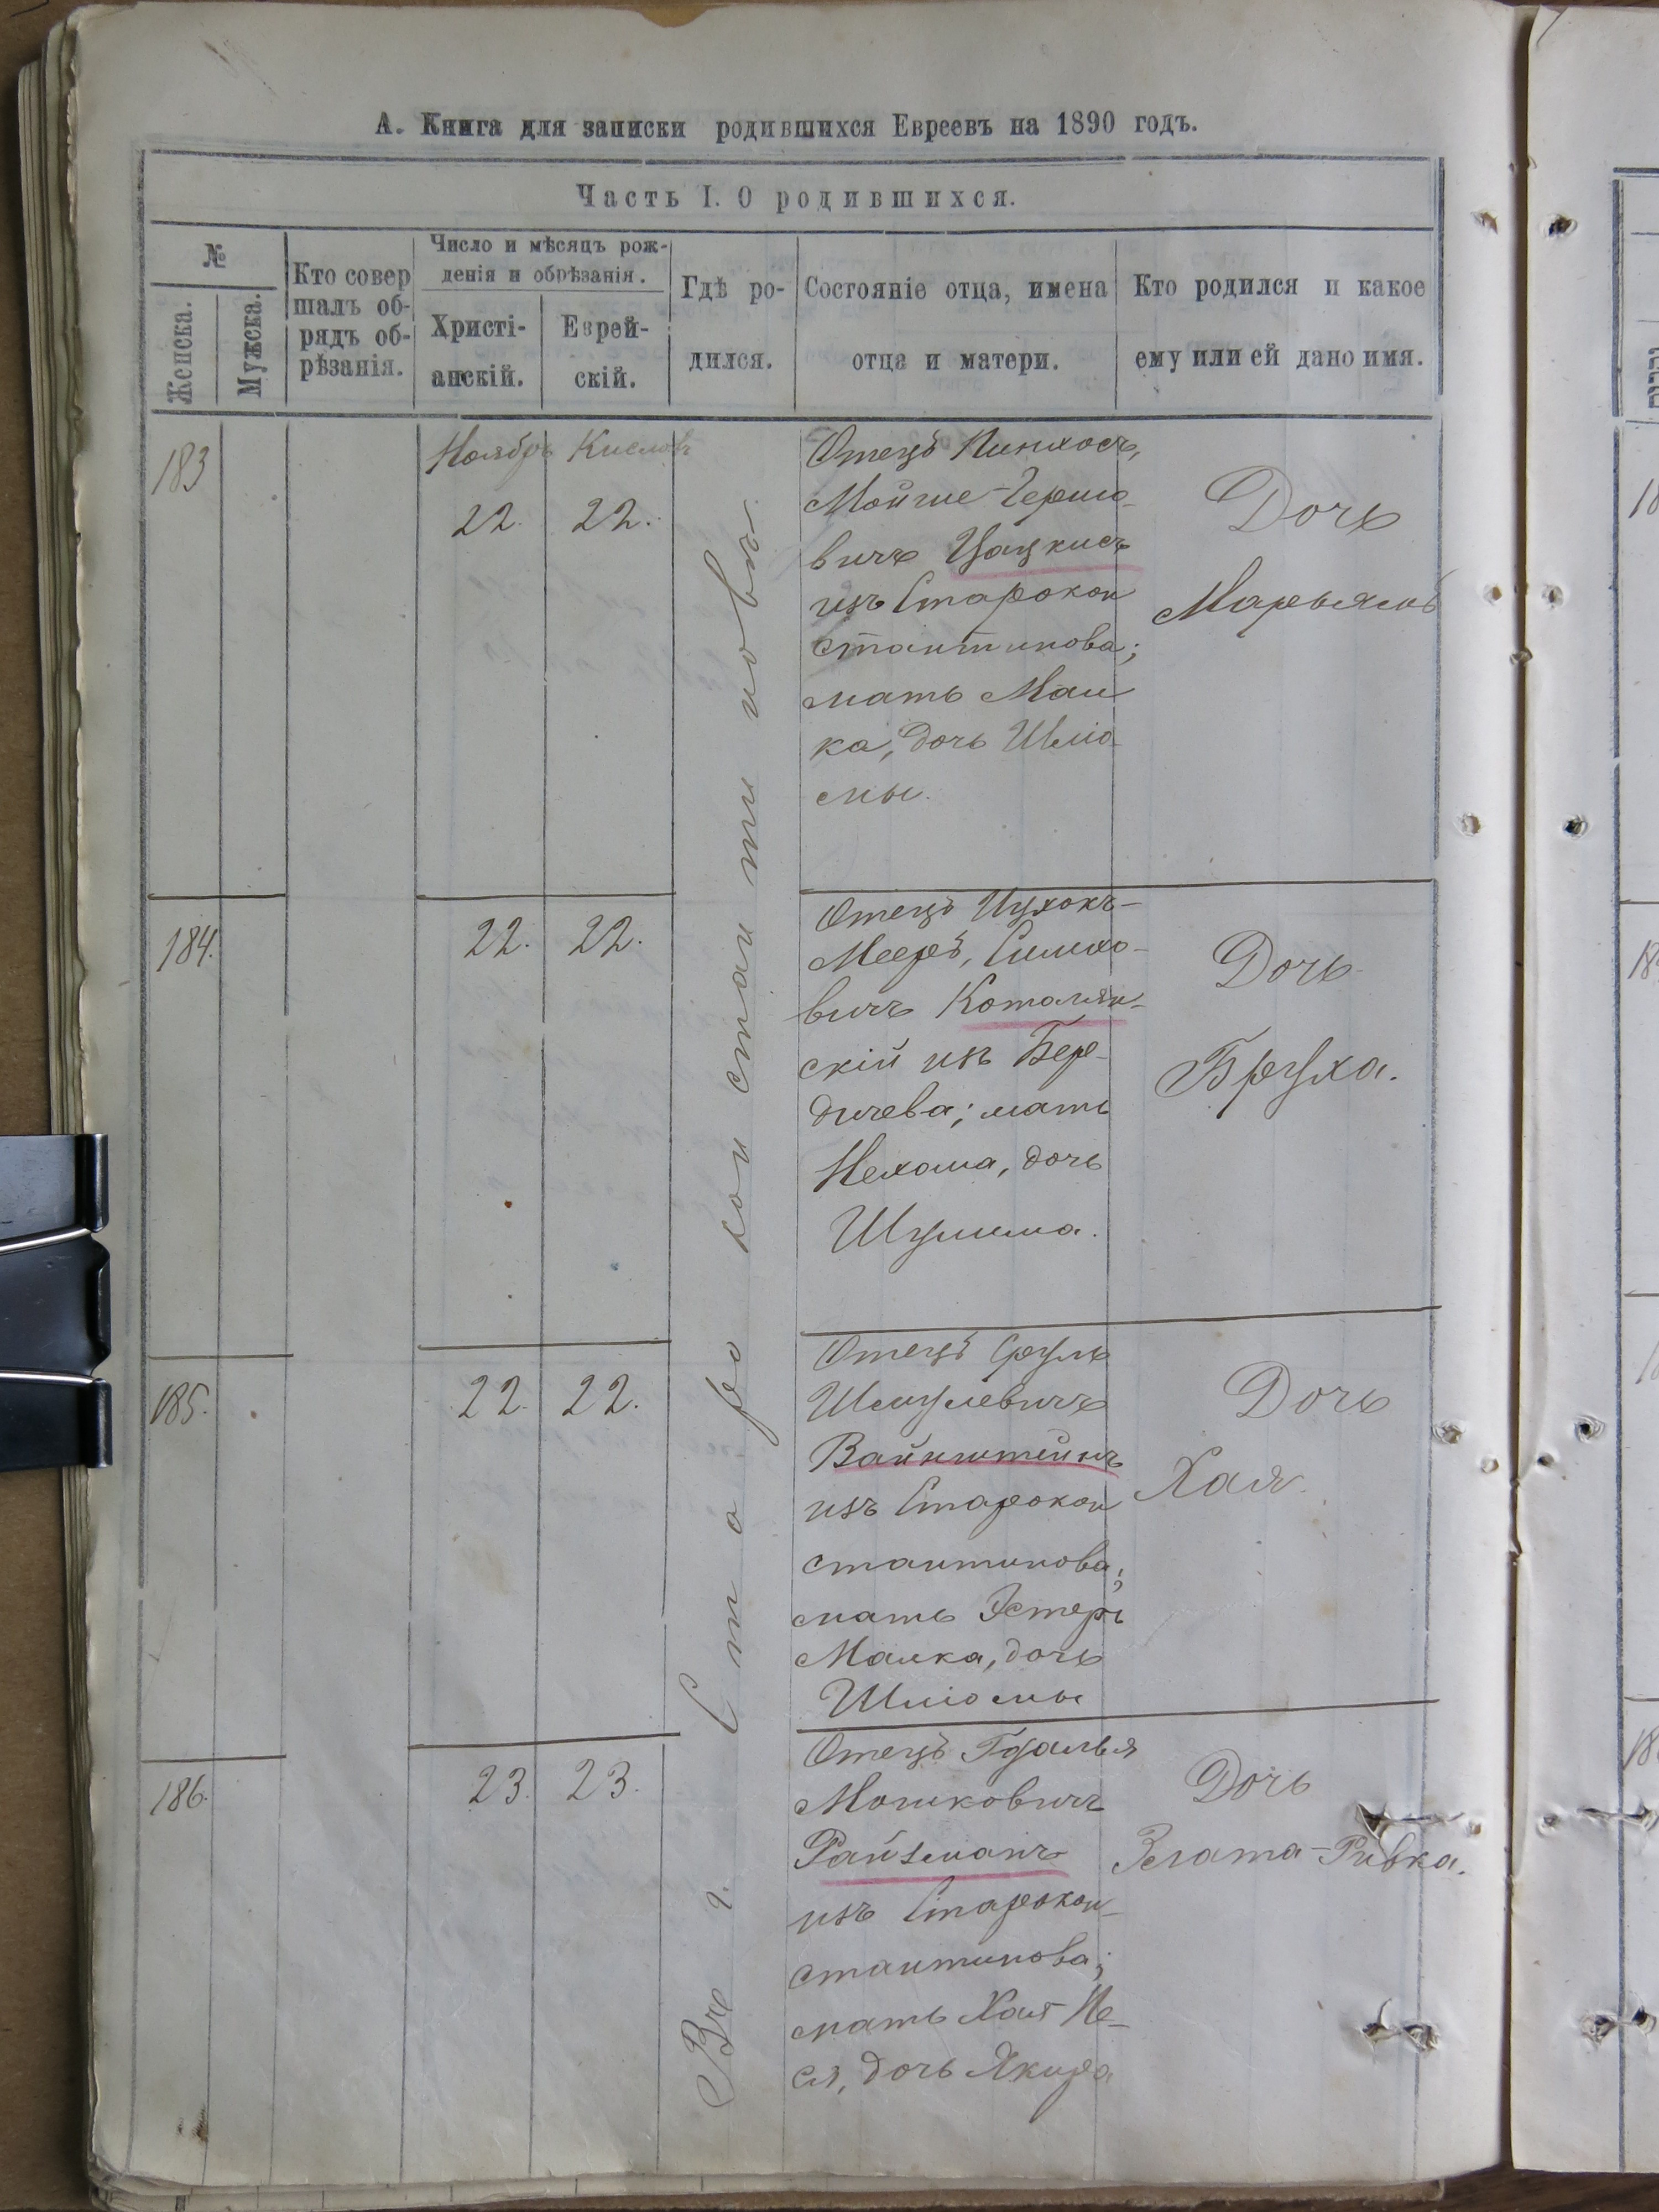 А. Книга для записки родившихся Евреевъ на 1890 годъ.
Часть I. О родившихся.
№
Женска.
Мужска.
Кто совер
шалъ об-
рядъ об-
рѣзанія.
Число и мѣсяцъ рож-
денія и обрѣзанія.
Христі-
анскій.
Еврей-
скій.
Гдѣ ро-
дился.
Состояніе отца, имена
отца и матери.
Кто родился и какое
ему или ей дано имя.
Въ г. Староконстантиновѣ
183
Ноябрь
Кислевъ
22.
22.
Отецъ Пинхосъ,
Мойше-Гершо-
вичъ Цацкисъ
изъ Старокон
стантинова;
мать Мал
ка, дочь Шлио-
мы.
Дочь
Марьямъ
184.
22.
22.
Отецъ Ицхокъ-
Мееръ, Симхо-
вичъ Котлян-
скій изъ Бер-
дичева; мать
Нехама, дочь
Шулима.
Дочь
Бруха.
185.
22.
22.
Отецъ Сруль
Шмулевичъ
Вайнштейнъ
изъ Старокон
стантинова;
мать Эстеръ
Малка, дочь
Шлиомы
Дочь
Хая.
186.
23.
23.
Отецъ Гдалья
Мошковичъ
Райзманъ
изъ Старокон-
стантинова;
мать Хая Пе-
ся, дочь Якира
Дочь
Злата-Ривка.